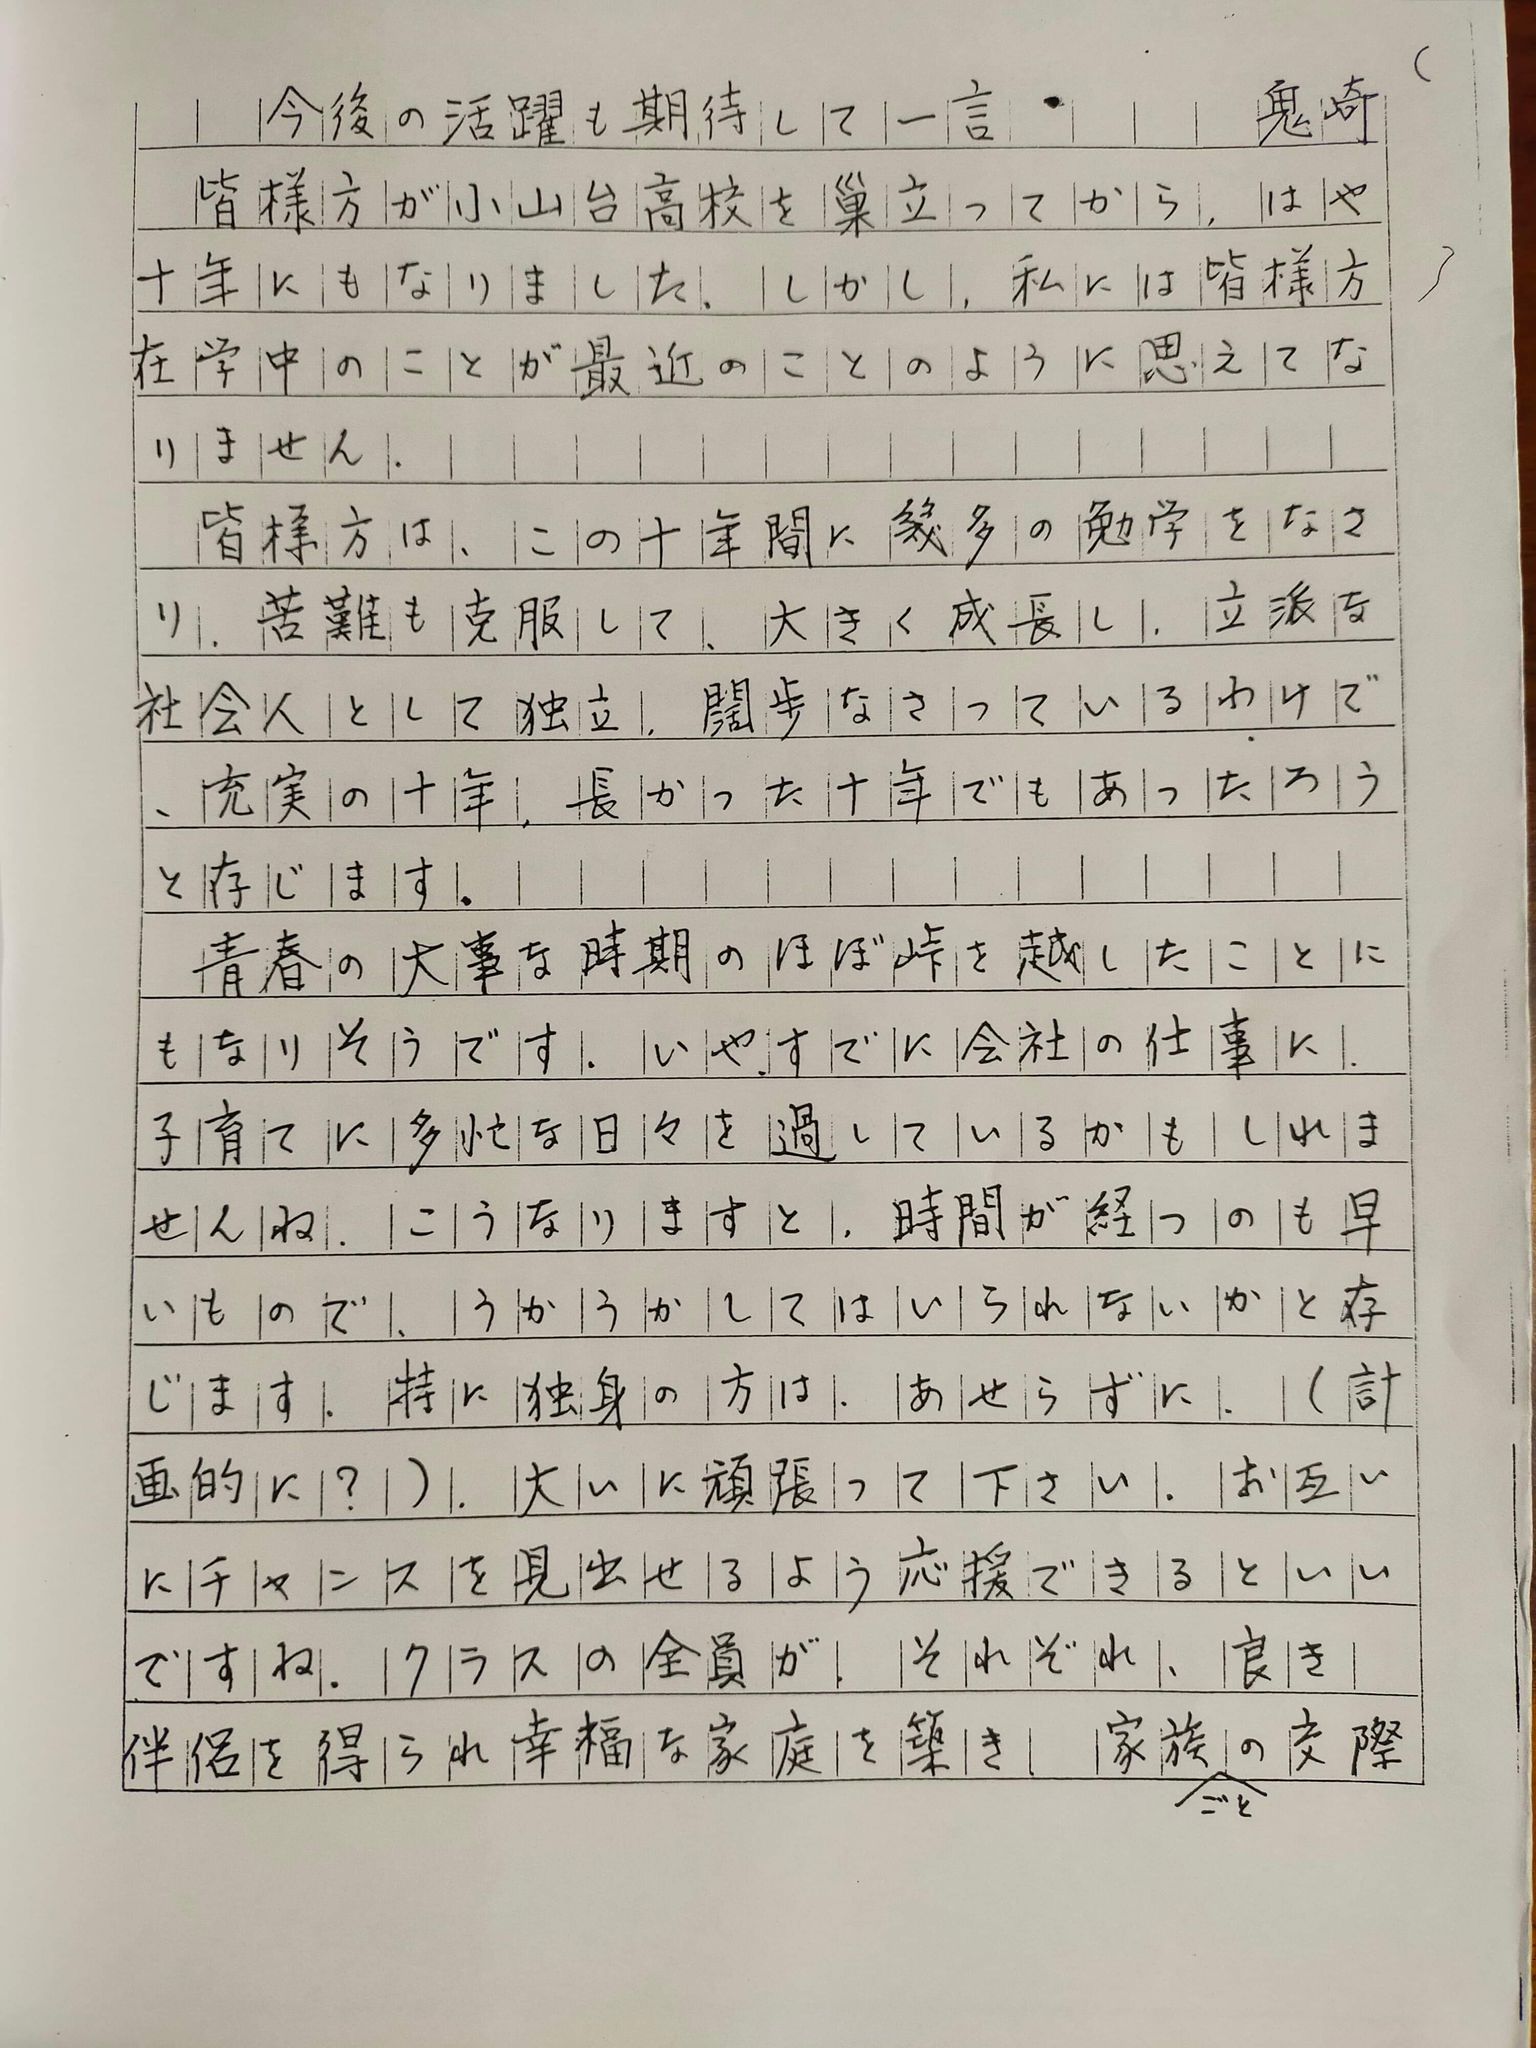 今後の活躍も期待して一言 鬼崎
皆様方が小山台高校を巣立ってから、はや
十年にもなりました。しかし、私には皆様方
在学中のことが最近のことのように思えてな
りません。
皆様方は、この十年間に幾多の勉学をなさ
り、苦難も克服して、大きく成長し、立派な
社会人として独立、闊歩なさっているわけで
、充実の十年、長かった十年でもあったろう
と存じます。
青春の大事な時期のほぼ峠を越したことに
もなりそうです。いや、すでに会社の仕事に、
子育てに多忙な日々を過しているかもしれま
せんね。こうなりますと、時間が経つのも早
いもので、うかうかしてはいられないかと存
じます。特に独身の方は、あせらずに、(計
画的に?)、大いに頑張って下さい。お互い
にチャンスを見出せるよう応援できるといい
ですね。クラスの全員が、それぞれ、良き
伴侶を得られ幸福な家庭を築き、家族ごとの交際